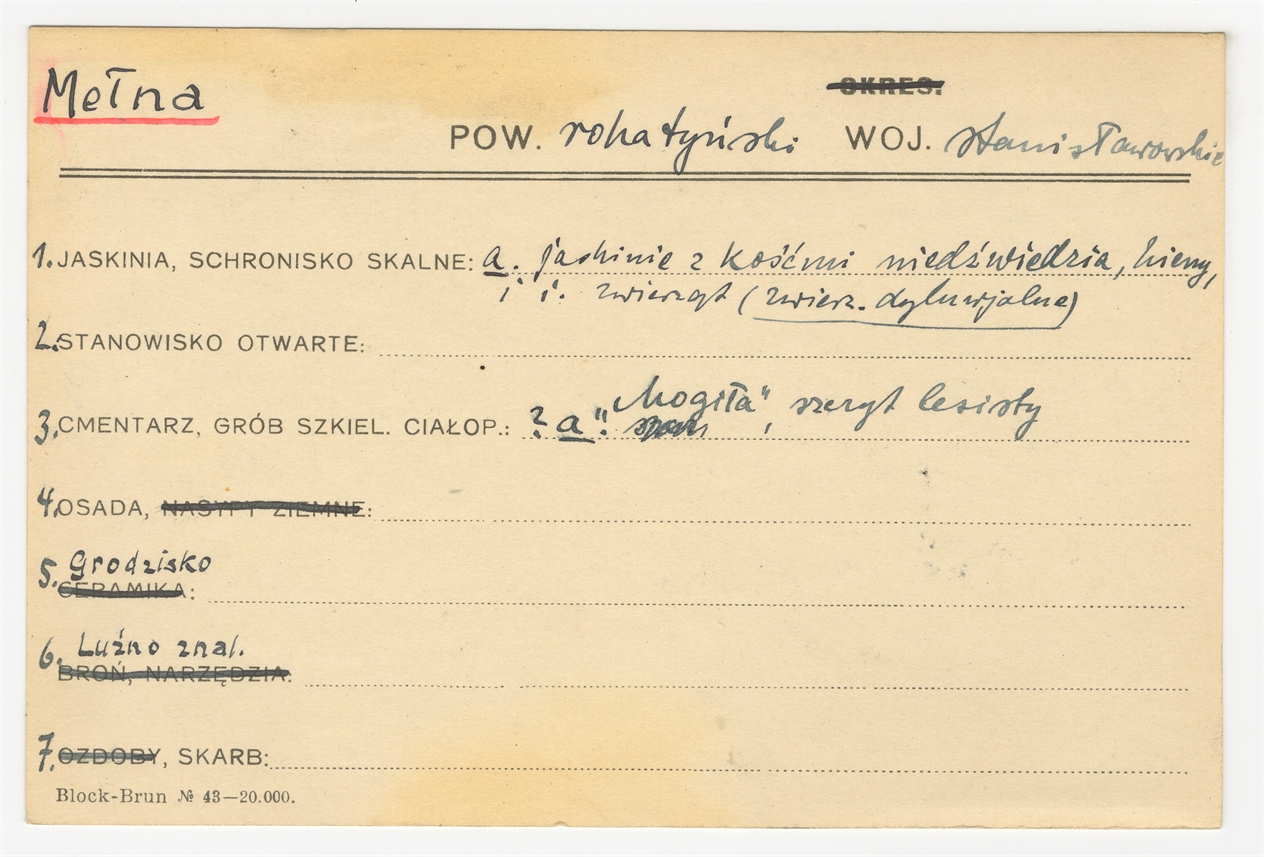 Mełna
OKRES.
POW. rohatyński WOJ. stanisławowskie
1. JASKINIA, SCHRONISKO SKALNE: a. jaskinie z kośćmi niedźwiedzia, hieny,
i i. zwierząt (zwierz. dyluwjalne)
2. STANOWISKO OTWARTE:
3. CMENTARZ, GRÓB SZKIEL. CIAŁOP.: ? a. "Mogiła", szczyt lesisty
4. OSADA, NASYPY ZIEMNE:
5. Grodzisko
CERAMIKA:
6. Luźno znal.
BROŃ, NARZĘDZIA:
7. OZDOBY, SKARB:
Block-Brun № 43—20.000.